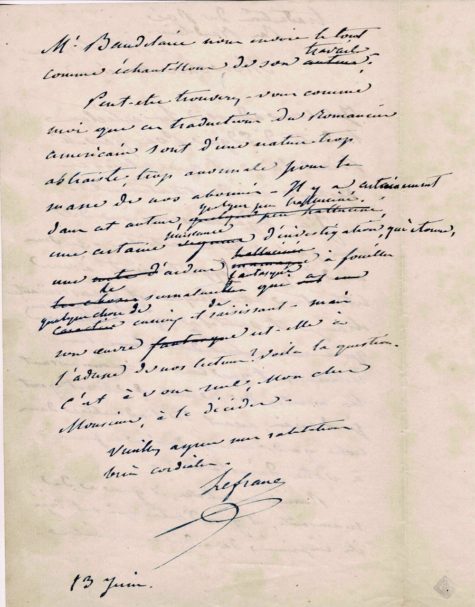 Mr. Baudelaire nous envoie le tout
travail
comme échantillon de son auteur.
Peut-etre trouverez-vous comme
moi que ces traductions du Romancier
américain sont d'une nature trop
abstraite, trop anormale pour la
masse de nos abonnés - Il y a certainement
quelque peu halluciné,
dans cet auteur quelque peu halluciné,
puissance
une certaine d'investigation qui étonne,
halluciné
une d'ardeur à fouiller
le fantasque
surnaturel qui a
quelque chose de
curieux et de saisissant - mais
son œuvre fantasque est-elle à
l'adresse de nos lecteurs? Voilà la question.
C'est à vous seul, Mon cher
Monsieur, à le décider.
Veuillez agréer mes salutations
bien cordiales.
Lefranc
13 Juin.